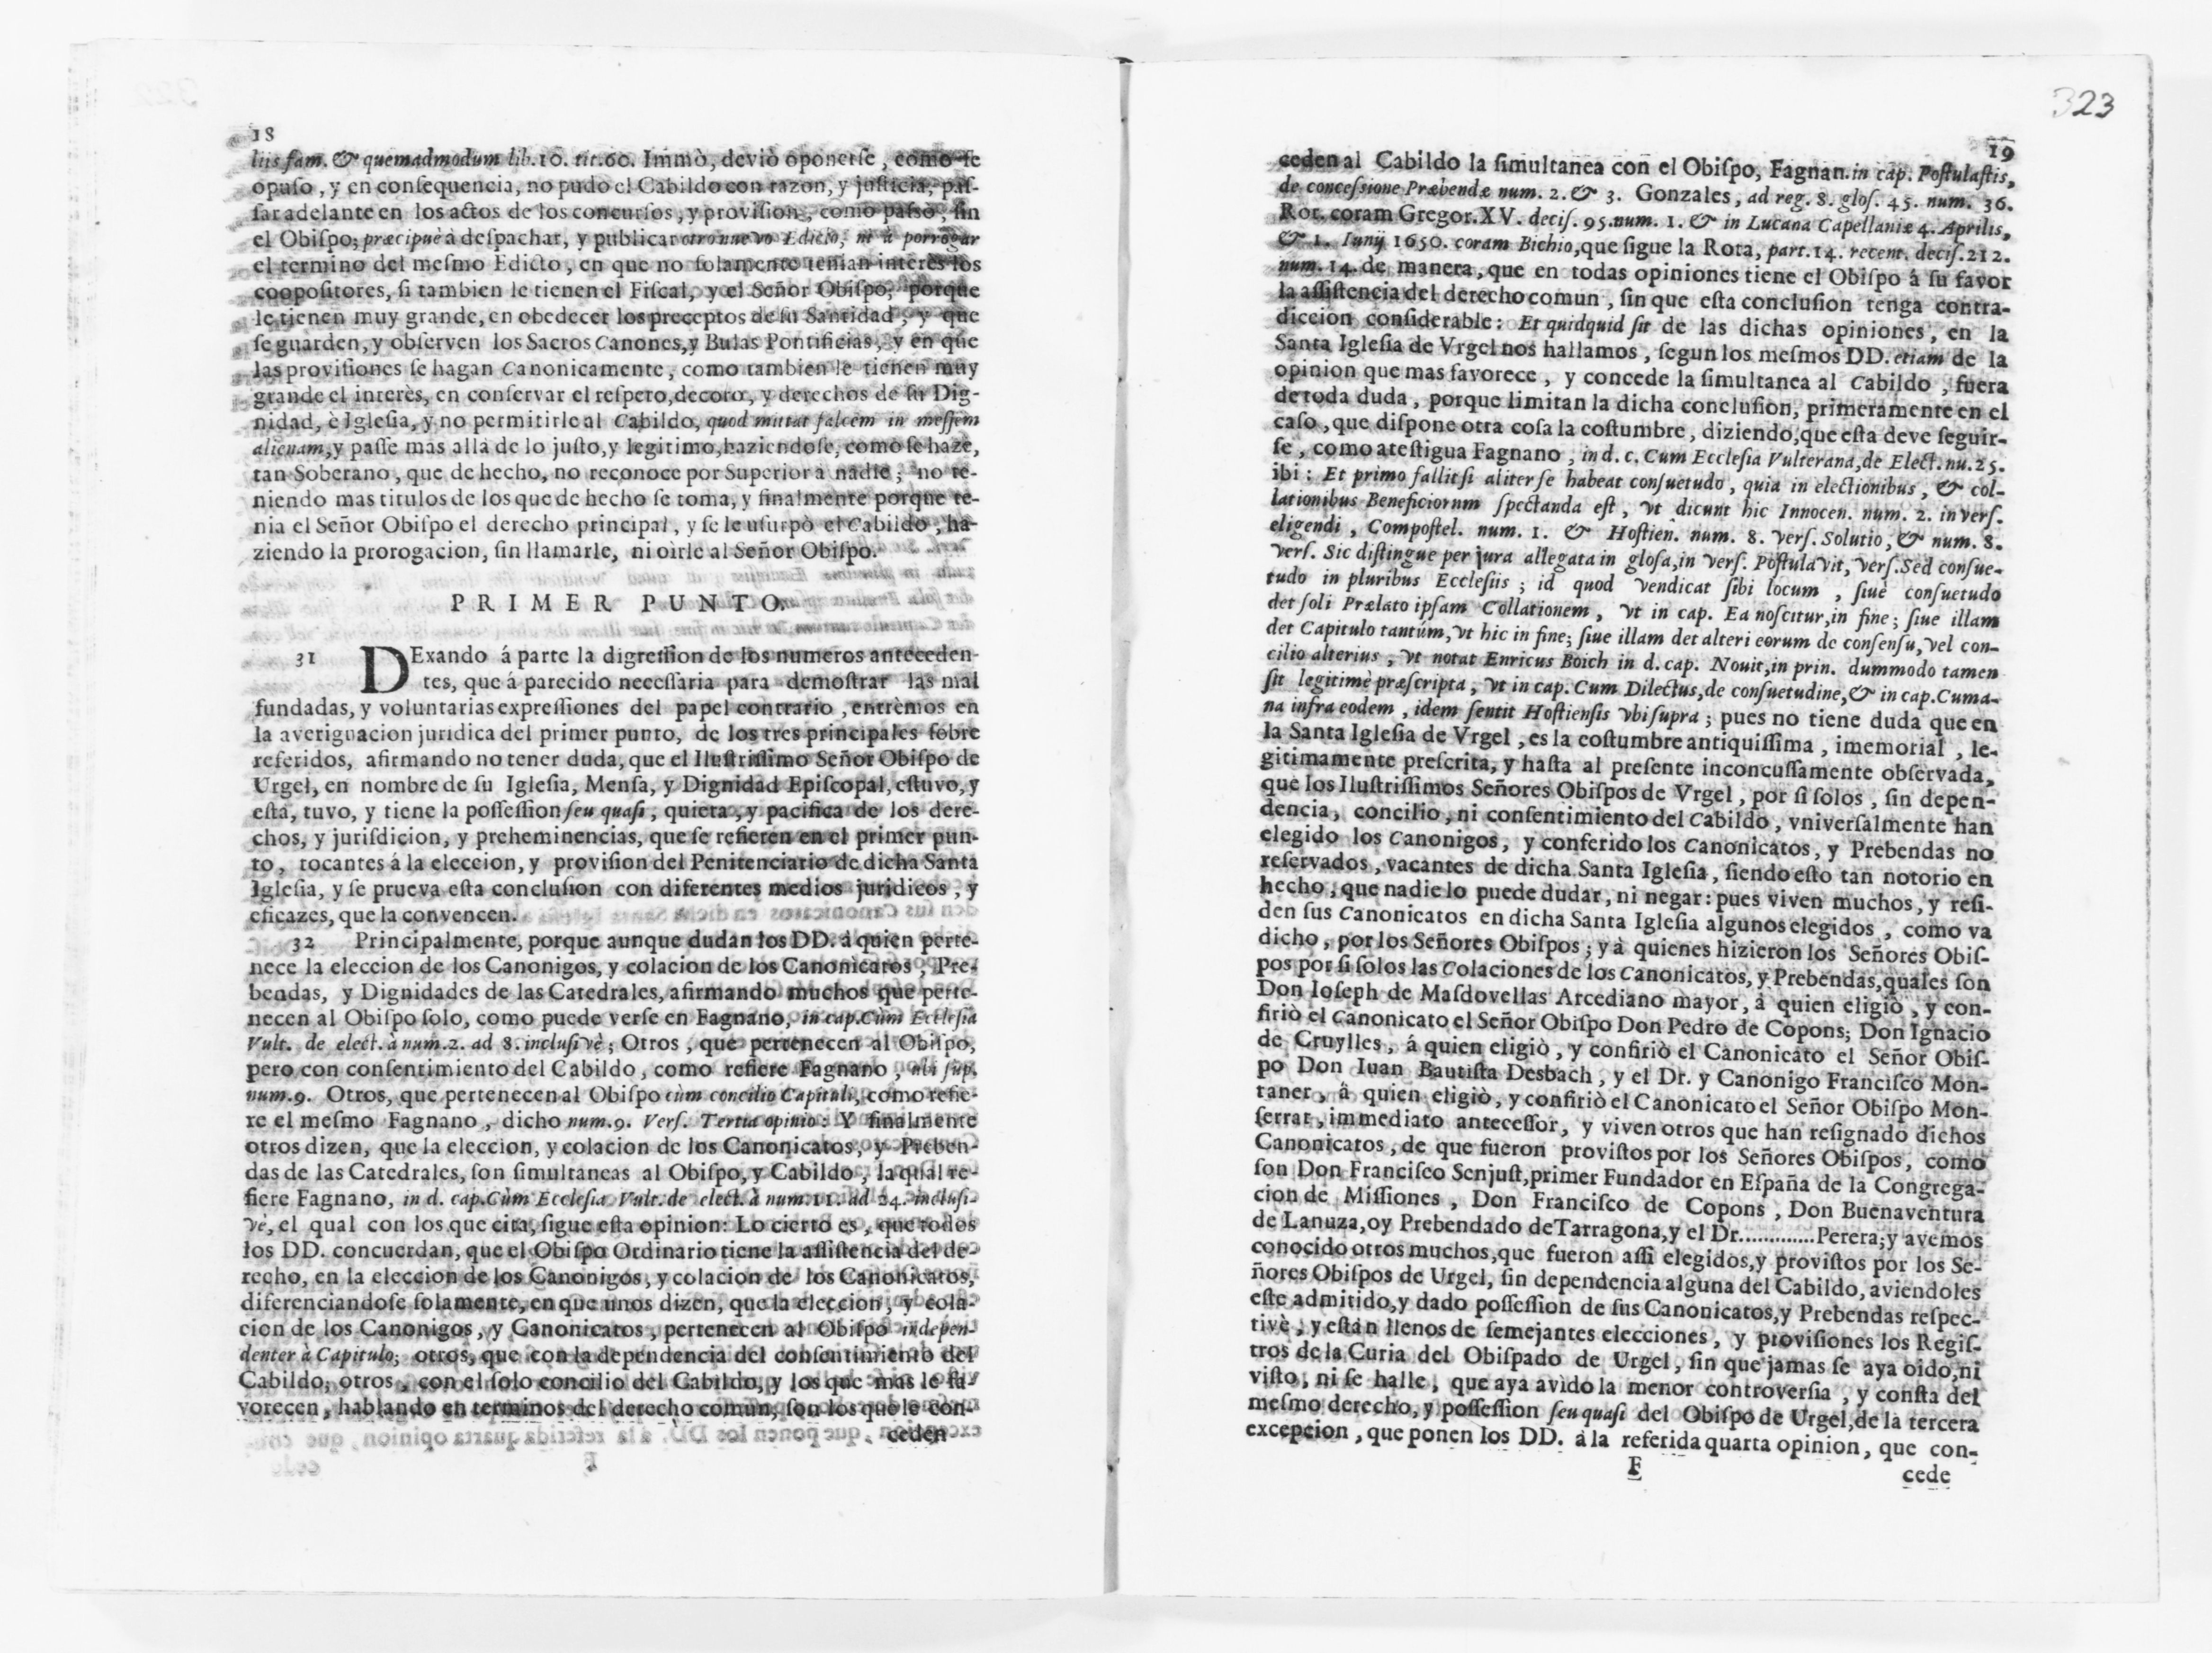 18
liis fam. & quemadmodum lib.10. tit.60. Immò, deviò oponerse, como se
opuso, y en consequencia, no pudo el Cabildo con razon, y justicia, pas-
sar adelante en los actos de los concursos, y provision, como passò, sin
el Obispo; præcipuè à despachar, y publicar otro nuevo Edicto, ni à porrogar
el termino del mesmo Edicto, en que no solamente tenian interès los
coopositores, si tambien le tienen el Fiscal, y el Señor Obispo; porque
le tienen muy grande, en obedecer los preceptos de su Santidad, y que
se guarden, y observen los Sacros Canones, y Bulas Pontificias, y en que
las provisiones se hagan Canonicamente, como tambien le tienen muy
grande el interès, en conservar el respeto, decoro, y derechos de su Dig-
nidad, è Iglesia, y no permitirle al Cabildo, quod mittat falcem in messem
alienam, y passe mas allà de lo justo, y legitimo, haziendose, como se haze,
tan Soberano, que de hecho, no reconoce por Superior à nadie; no te-
niendo mas titulos de los que de hecho se toma, y finalmente porque te-
nia el Señor Obispo el derecho principal, y se le usurpò el Cabildo, ha-
ziendo la prorogacion, sin llamarle, ni oirle al Señor Obispo.
PRIMER PUNTO.
31 DExando á parte la digression de los numeros anteceden-
tes, que á parecido necessaria para demostrar las mal
fundadas, y voluntarias expressiones del papel contrario, entrèmos en
la averiguacion juridica del primer punto, de los tres principales sobre
referidos, afirmando no tener duda, que el Ilustrissimo Señor Obispo de
Urgel, en nombre de su Iglesia, Mensa, y Dignidad Episcopal, estuvo, y
esta, tuvo, y tiene la possession seu quasi, quieta, y pacifica de los dere-
chos, y jurisdicion, y preheminencias, que se refieren en el primer pun-
to, tocantes á la eleccion, y provision del Penitenciario de dicha Santa
Iglesia, y se prueva esta conclusion con diferentes medios juridicos, y
eficazes, que la convencen.
32 Principalmente, porque aunque dudan los DD. à quien perte-
nece la eleccion de los Canonigos, y colacion de los Canonicatos, Pre-
bendas, y Dignidades de las Catedrales, afirmando muchos que perte-
necen al Obispo solo, como puede verse en Fagnano, in cap. Cùm Ecclesia
Vult. de elect. à num.2. ad 8. inclusivè; Otros, que pertenecen al Obispo,
pero con consentimiento del Cabildo, como refiere Fagnano, ubi sup.
num.9. Otros, que pertenecen al Obispo cùm concilio Capituli, como refie-
re el mesmo Fagnano, dicho num.9. Vers. Tertia opinio: Y finalmente
otros dizen, que la eleccion, y colacion de los Canonicatos, y Preben-
das de las Catedrales, son simultaneas al Obispo, y Cabildo, la qual re-
fiere Fagnano, in d. cap. Cùm Ecclesia Vult. de elect. à num.11. ad 24. inclusi-
vè, el qual con los que cita, sigue esta opinion: Lo cierto es, que todos
los DD. concuerdan, que el Obispo Ordinario tiene la assistencia del de-
recho, en la eleccion de los Canonigos, y colacion de los Canonicatos,
diferenciandose solamente, en que unos dizen, que la eleccion, y cola-
cion de los Canonigos, y Canonicatos, pertenecen al Obispo indepen-
denter à Capitulo; otros, que con la dependencia del consentimiento del
Cabildo; otros, con el solo concilio del Cabildo, y los que mas le fa-
vorecen, hablando en terminos del derecho comun, son los que le con-
ceden
323
19
ceden al Cabildo la simultanea con el Obispo, Fagnan. in cap. Postulastis,
de concessione Præbendæ num. 2. & 3. Gonzales, ad reg. 8. glos. 45. num. 36.
Rot. coram Gregor. XV. decis. 95. num. 1. & in Lucana Capellaniæ 4. Aprilis,
& 1. Iunij 1650. coram Bichio, que sigue la Rota, part.14. recent. decis.212.
num. 14. de manera, que en todas opiniones tiene el Obispo á su favor
la assistencia del derecho comun, sin que esta conclusion tenga contra-
diccion considerable: Et quidquid sit de las dichas opiniones, en la
Santa Iglesia de Vrgel nos hallamos, segun los mesmos DD. etiam de la
opinion que mas favorece, y concede la simultanea al Cabildo, fuera
de toda duda, porque limitan la dicha conclusion, primeramente en el
caso, que dispone otra cosa la costumbre, diziendo, que esta deve seguir-
se, como atestigua Fagnano, in d. c. Cum Ecclesia Vulterana, de Elect. nu.25.
ibi: Et primo fallit si aliter se habeat consuetudo, quia in electionibus, & col-
lationibus Beneficiorum spectanda est, vt dicunt hic Innocen. num. 2. in vers.
eligendi, Compostel. num. 1. & Hostien. num. 8. vers. Solutio, & num. 8.
vers. Sic distingue per jura allegata in glosa, in vers. Postulavit, vers. Sed consue-
tudo in pluribus Ecclesiis; id quod vendicat sibi locum, siuè consuetudo
det soli Prælato ipsam Collationem, vt in cap. Ea noscitur, in fine; siue illam
det Capitulo tantúm, vt hic in fine; siue illam det alteri eorum de consensu, vel con-
cilio alterius, vt notat Enricus Boich in d. cap. Nouit, in prin. dummodo tamen
sit legitimè præscripta, vt in cap. Cum Dilectus, de consuetudine, & in cap. Cuma-
na infra eodem, idem sentit Hostiensis vbi supra; pues no tiene duda que en
la Santa Iglesia de Vrgel, es la costumbre antiquissima, imemorial, le-
gitimamente prescrita, y hasta al presente inconcussamente observada,
que los Ilustrissimos Señores Obispos de Vrgel, por si solos, sin depen-
dencia, concilio, ni consentimiento del Cabildo, vniversalmente han
elegido los Canonigos, y conferido los Canonicatos, y Prebendas no
reservados, vacantes de dicha Santa Iglesia, siendo esto tan notorio en
hecho, que nadie lo puede dudar, ni negar: pues viven muchos, y resi-
den sus Canonicatos en dicha Santa Iglesia algunos elegidos, como va
dicho, por los Señores Obispos; y à quienes hizieron los Señores Obis-
pos por si solos las Colaciones de los Canonicatos, y Prebendas, quales son
Don Ioseph de Masdovellas Arcediano mayor, à quien eligiò, y con-
firiò el Canonicato el Señor Obispo Don Pedro de Copons; Don Ignacio
de Cruylles, á quien eligiò, y confiriò el Canonicato el Señor Obis-
po Don Iuan Bautista Desbach, y el Dr. y Canonigo Francisco Mon-
taner, â quien eligiò, y confiriò el Canonicato el Señor Obispo Mon-
serrat, immediato antecessor, y viven otros que han resignado dichos
Canonicatos, de que fueron provistos por los Señores Obispos, como
son Don Francisco Senjust, primer Fundador en España de la Congrega-
cion de Missiones, Don Francisco de Copons, Don Buenaventura
de Lanuza, oy Prebendado de Tarragona, y el Dr............. Perera; y avemos
conocido otros muchos, que fueron assi elegidos, y provistos por los Se-
ñores Obispos de Urgel, sin dependencia alguna del Cabildo, aviendoles
este admitido, y dado possession de sus Canonicatos, y Prebendas respec-
tivè; y están llenos de semejantes elecciones, y provisiones los Regis-
tros de la Curia del Obispado de Urgel, sin que jamas se aya oido, ni
visto, ni se halle, que aya avido la menor controversia, y consta del
mesmo derecho, y possession seu quasi del Obispo de Urgel, de la tercera
excepcion, que ponen los DD. á la referida quarta opinion, que con-
F
cede